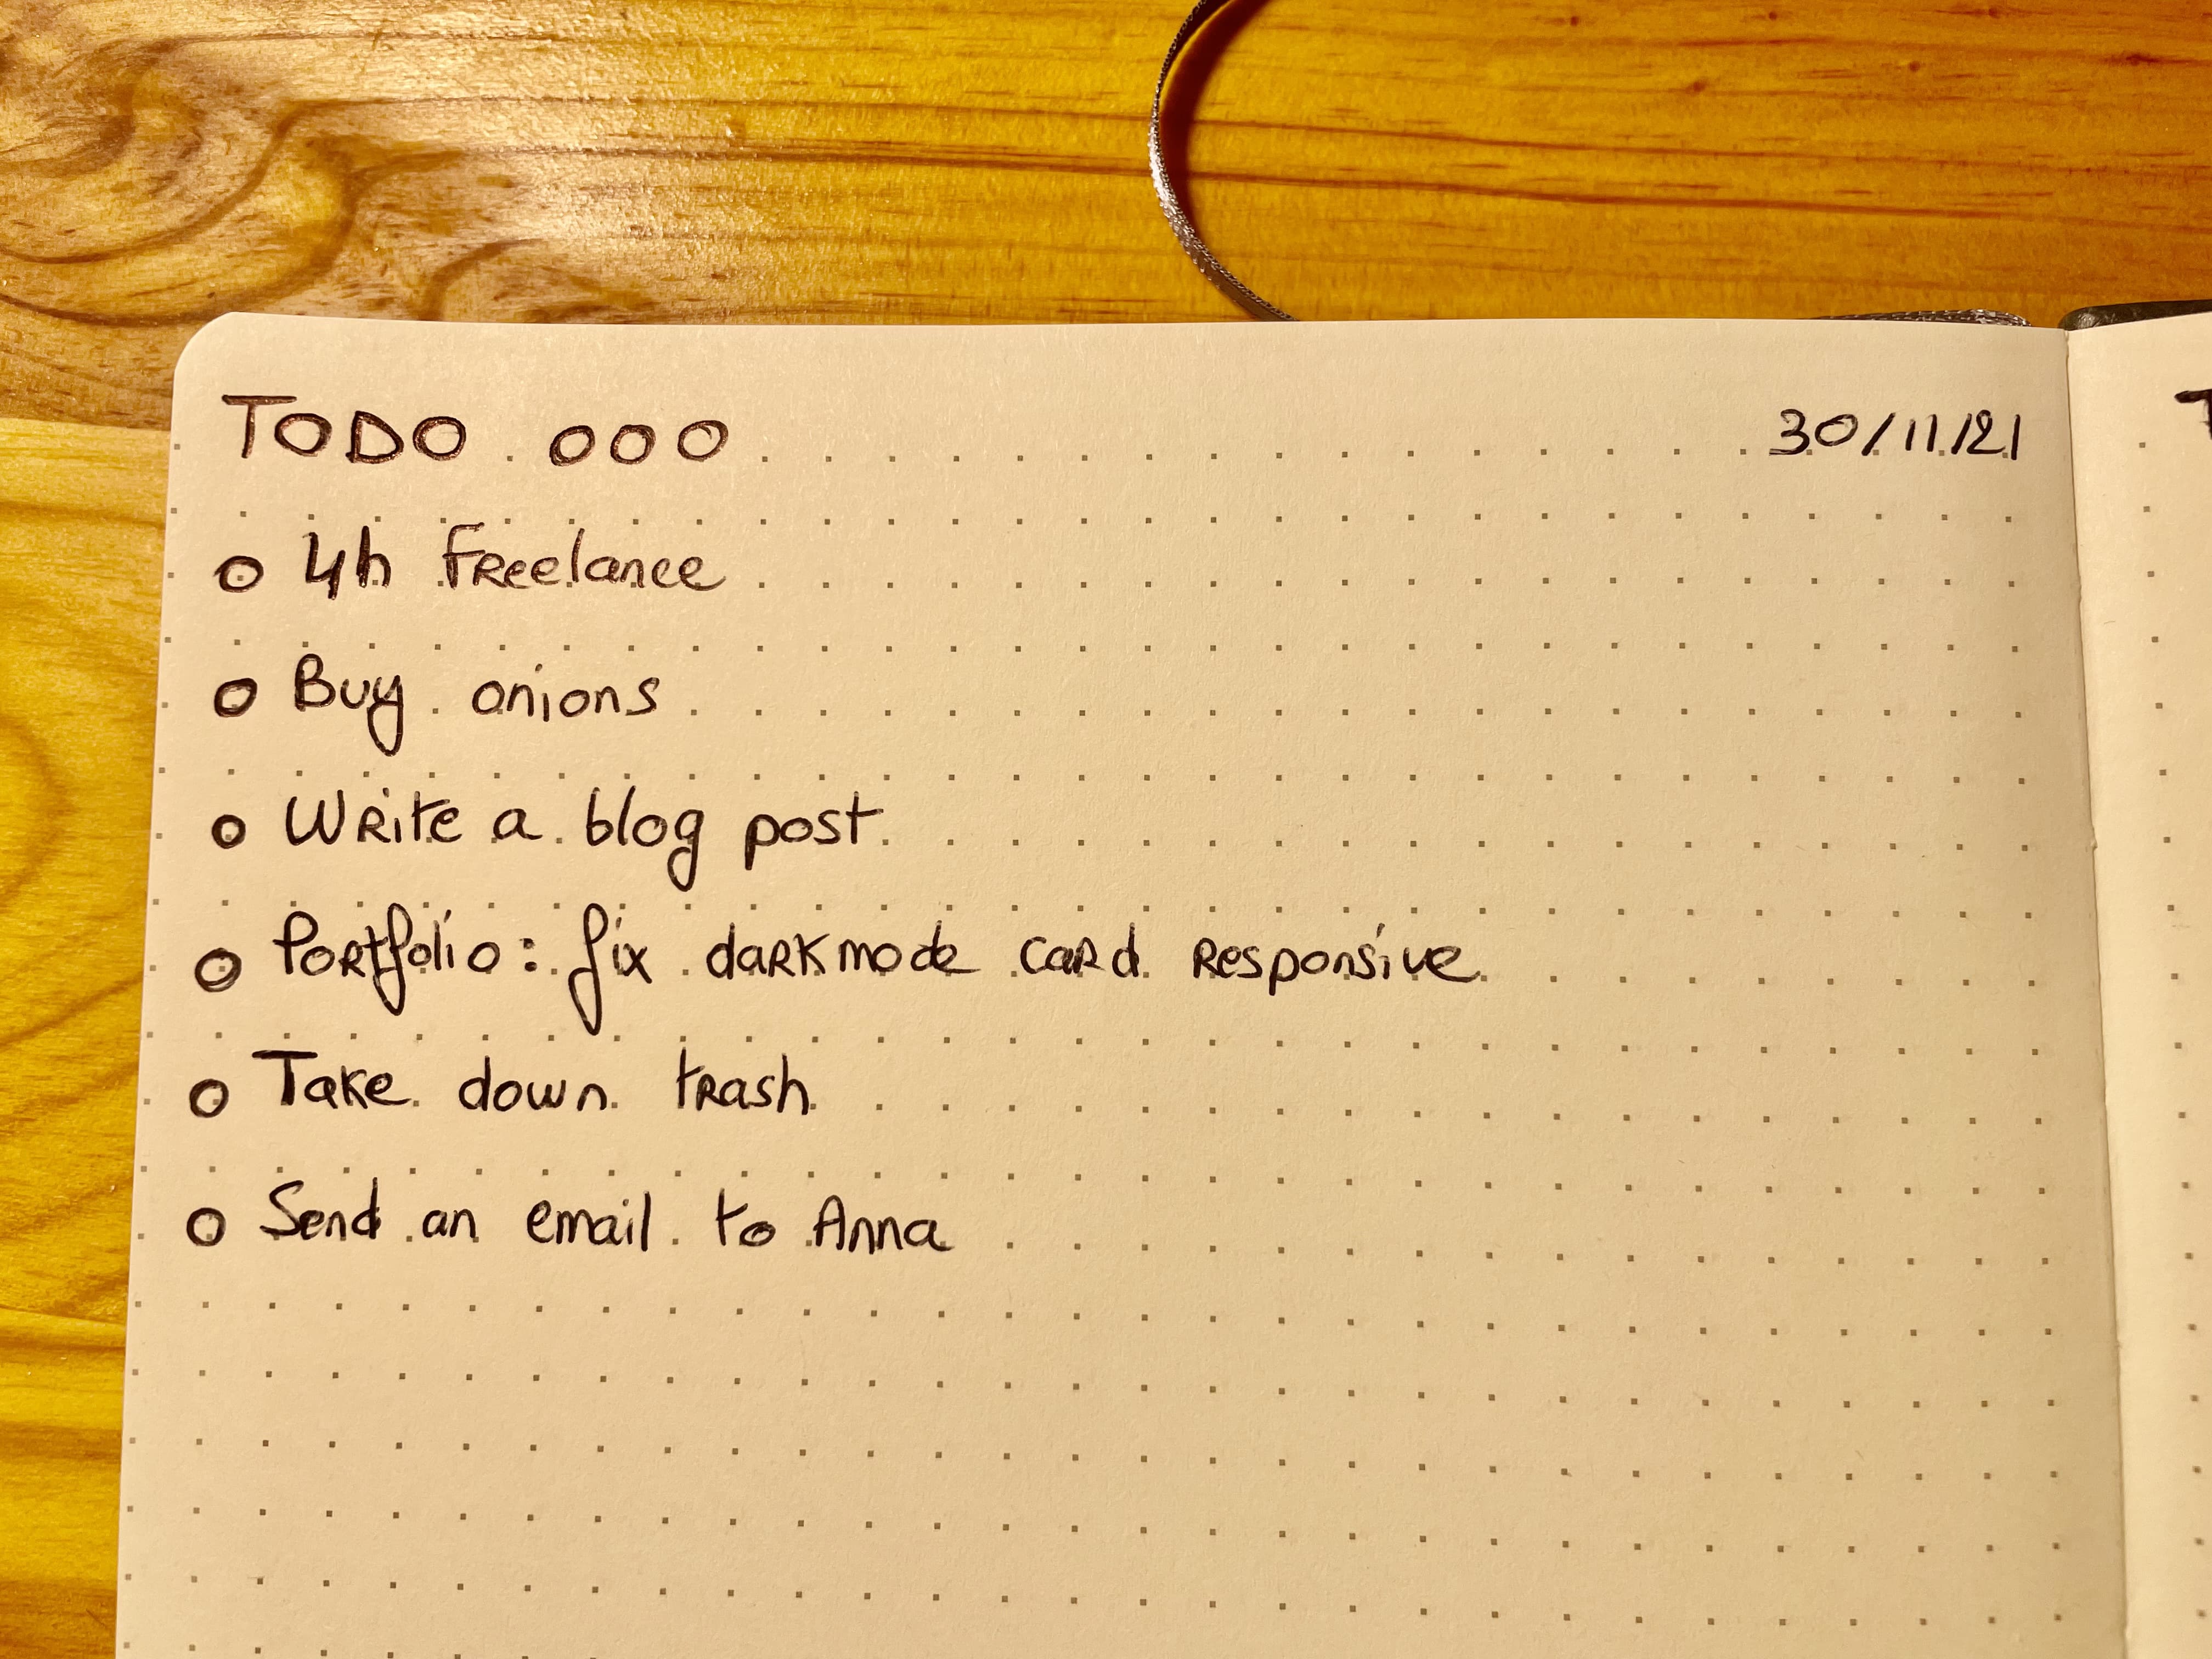 TODO ooo 30/11/21
o 4h Freelance
o Buy onions
o Write a blog post
o Portfolio: fix darkmode card responsive
o Take down trash
o Send an email to Anna